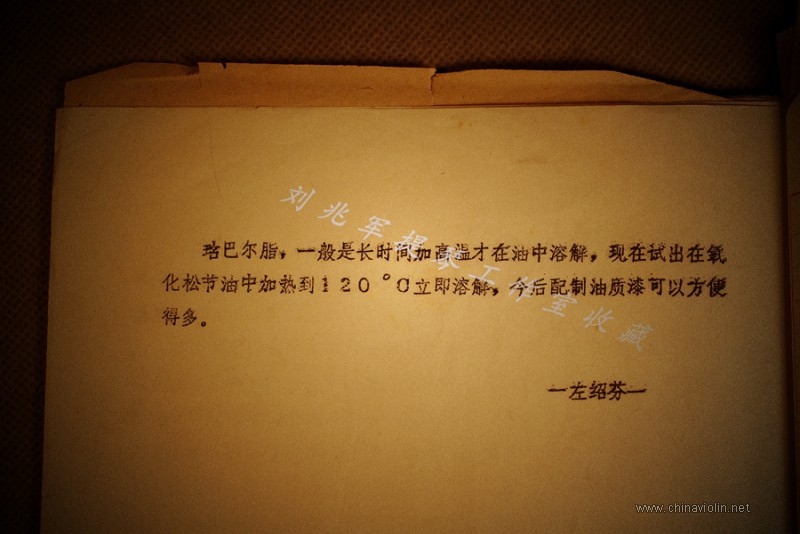 珞巴尔脂，一般是长时间加高温才在油中溶解，现在试出在氧
化松节油中加热到120°C立即溶解，今后配制油质漆可以方便
得多。
—左绍芬—
刘兆军提琴工作室收藏
www.chinaviolin.net